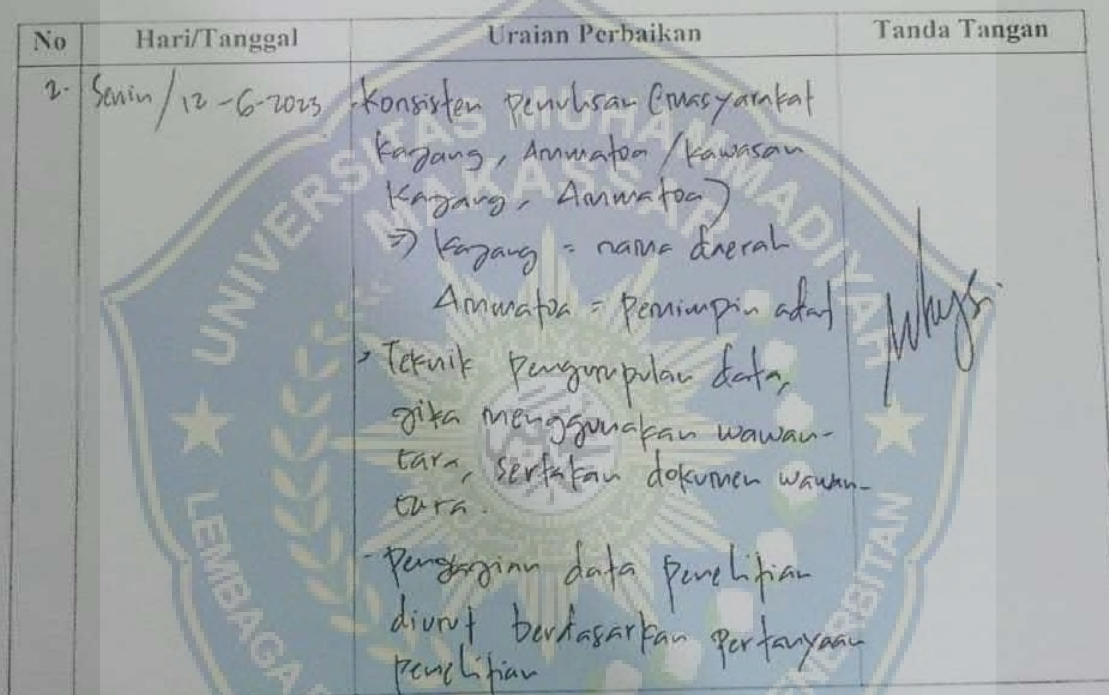 No Hari/Tanggal Uraian Perbaikan Tanda Tangan
2. Senin / 12-6-2023 - Konsisten penulisan (masyarakat
Kajang, Ammatoa / Kawasan
Kajang, Ammatoa)
⇒ Kajang = nama daerah
Ammatoa = Pemimpin adat
> Teknik Pengumpulan data,
jika menggunakan wawan-
cara, sertakan dokumen wawan-
cara.
- Pengkajian data penelitian
diurut berdasarkan pertanyaan
penelitian
UNIVERSITAS MUHAMMADIYAH
MAKASSAR
LEMBAGA